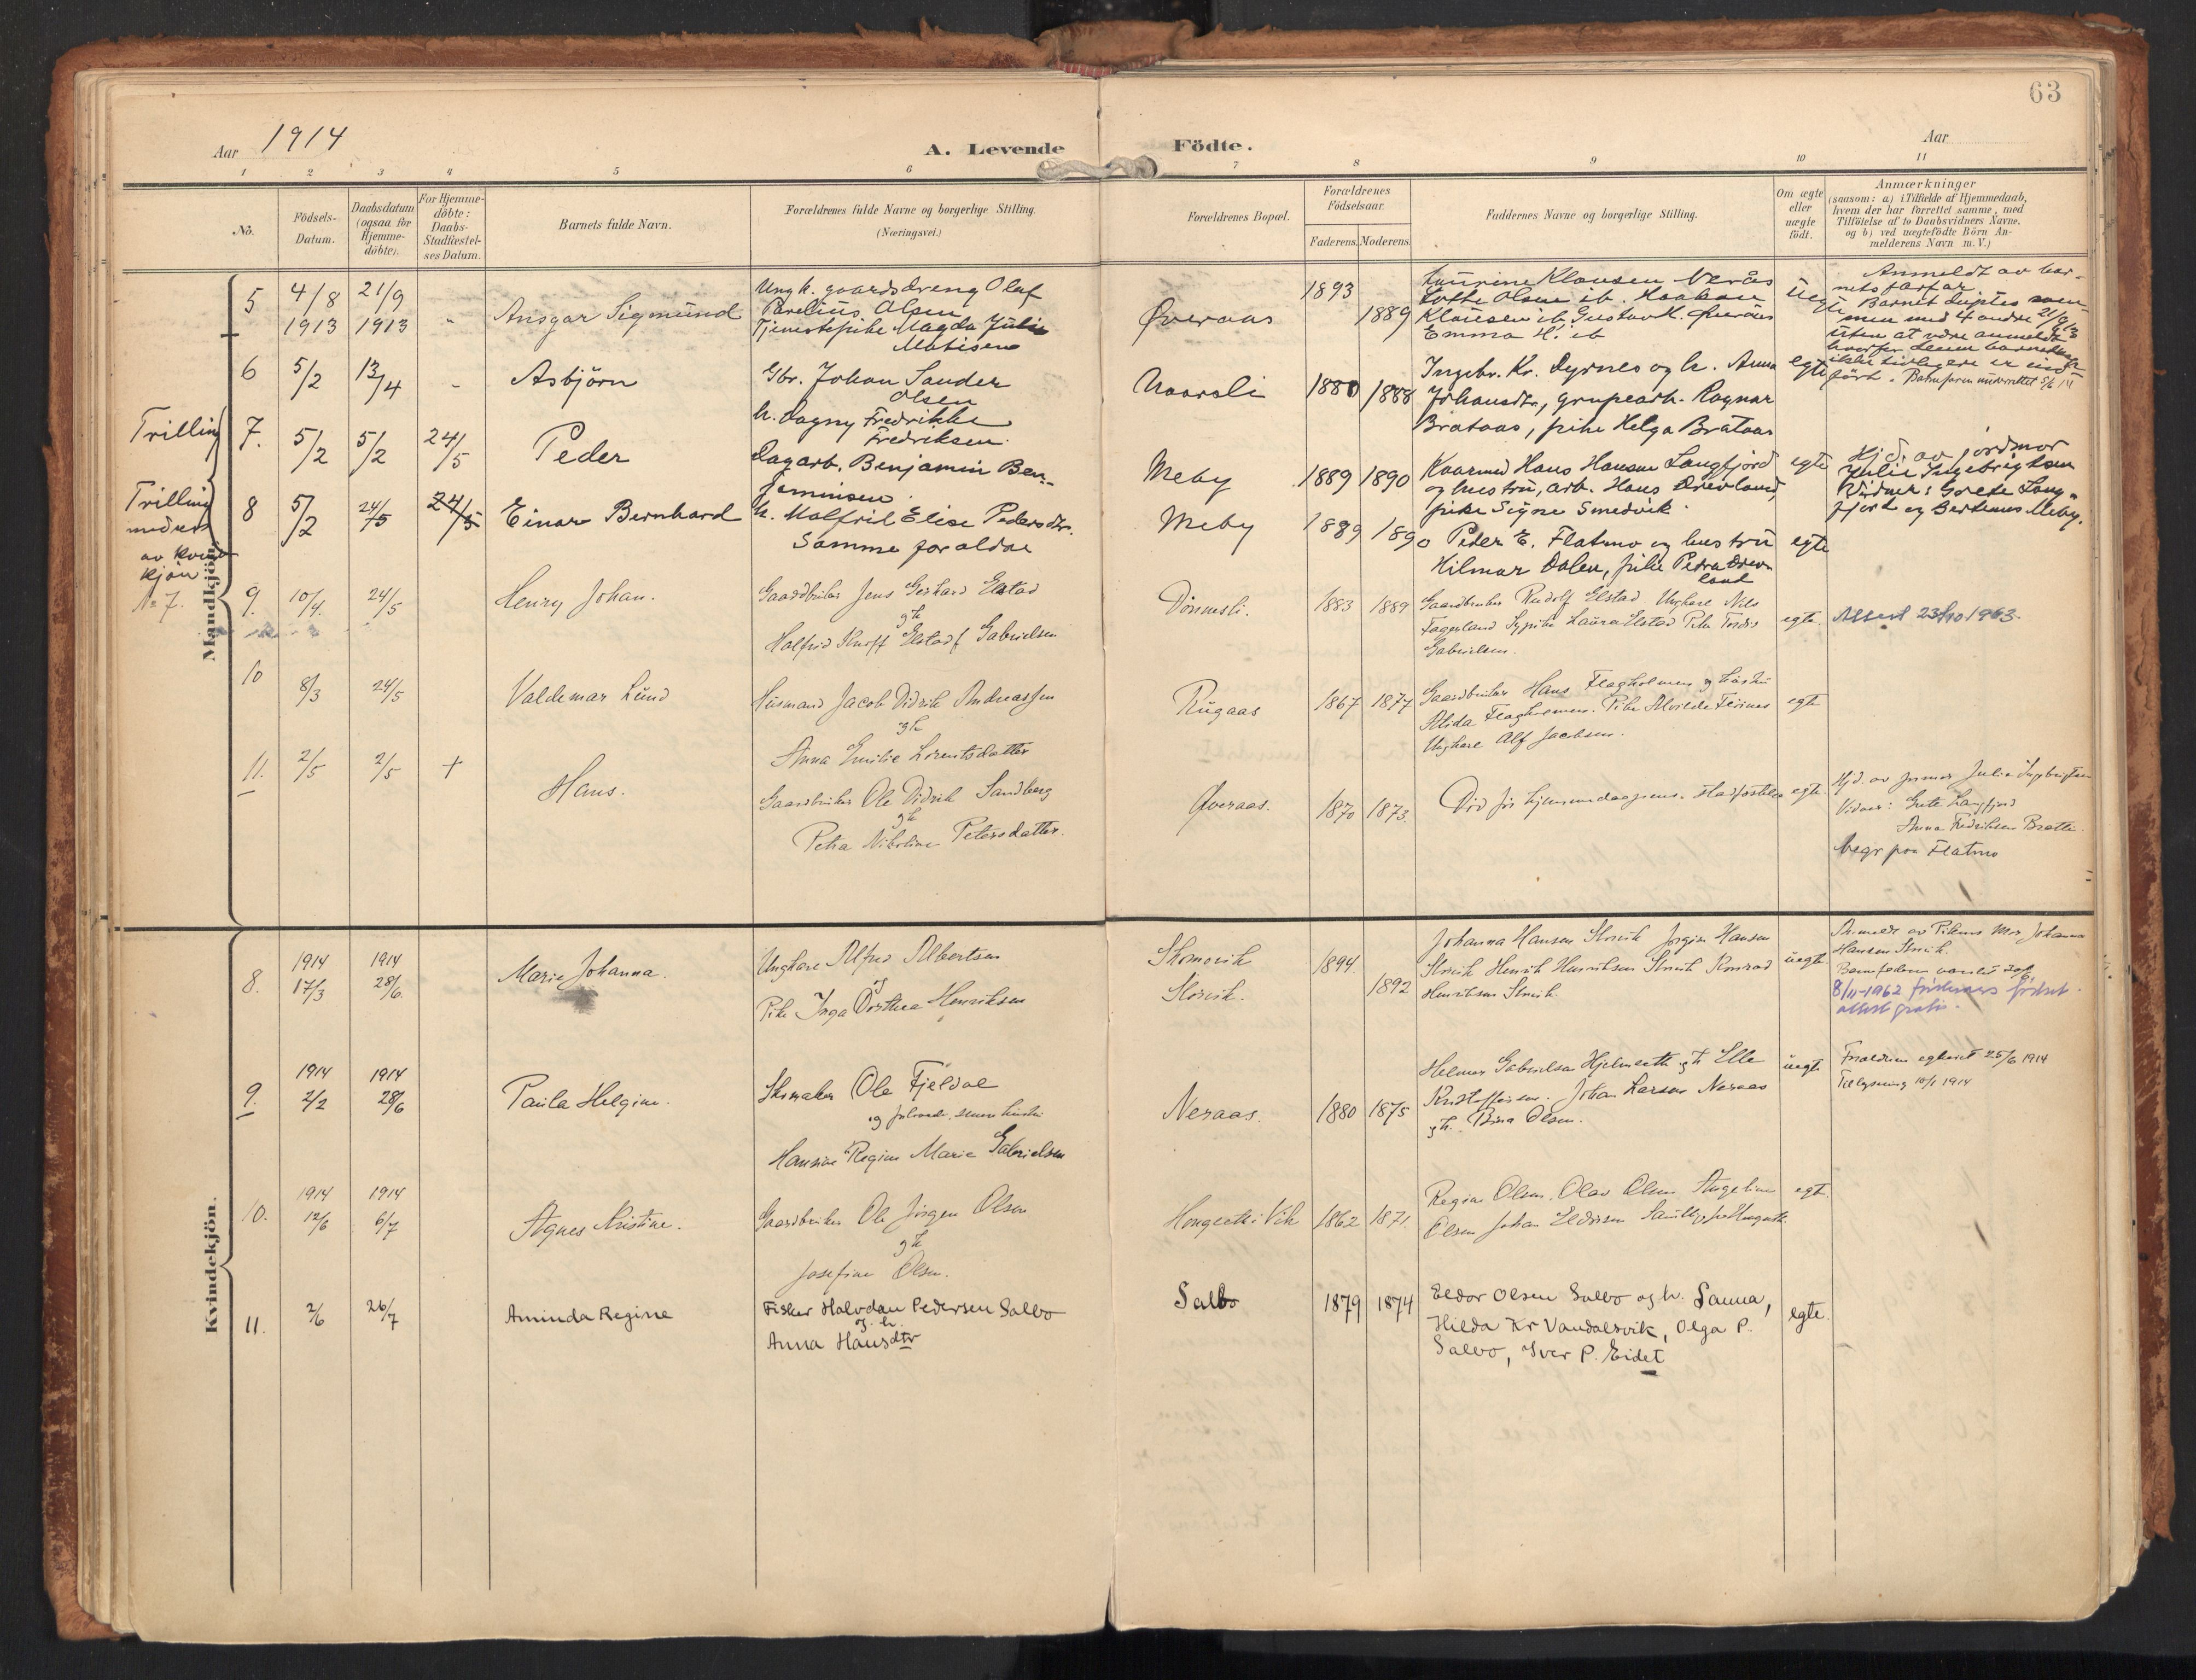 63
Aar 1914
A. Levende
Födte.
Aar
1 2 3 4 5 6 7 8 9 10 11
No.
Födsels-
Datum.
Daabsdatum
(ogsaa för
Hjemme-
döbte).
For Hjemme-
döbte:
Daabs-
Stadfæstel-
ses Datum.
Barnets fulde Navn.
Forældrenes fulde Navne og borgerlige Stilling.
(Næringsvei.)
Forældrenes Bopæl.
Forældrenes
Födselsaar.
Faderens. Moderens.
Faddernes Navne og borgerlige Stilling.
Om ægte
eller
uægte
født.
Anmærkninger
(saasom: a) i Tilfælde af Hjemmedaab,
hvem der har forrettet samme, med
Tilföielse af to Daabsvidners Navne,
og b) ved uægtefödte Börn An-
melderens Navn m. V.)
Mandkjön.
5
4/8
1913
21/9
1913
"
Ansgar Sigmund
Ungk. gaardsdreng Olaf
Parelius Olsen
Tjenestepike Magda Julie
Matisen
Øveraas
1893
1889
Laurine Klausen Nerås
Lotte Olsen ib. Haakon
Klausen ib. Gustav K. Øverås
Emma H. ib
Uegte
Anmeldt av bar-
nets farfar.
Barnet døptes sam-
men med 4 andre 21/9 13
uten at være anmeldt
hvorfor denne
ikke tidligere er ind-
ført. Barnefaren underrettet 5/6 14
6
5/2
13/4
"
Asbjörn
Gbr. Johan Sander
Olsen
h. Dagny Fredrikke
Fredriksen.
Naarsli
1880 1888
Ingebr. Kr. Dyrnes og h. Anna
Johansdtr., grupearb. Ragnar
Brataas, pike Helga Brataas
egte
Trilling
7.
5/2
5/2
24/5
Peder
Dagarb. Benjamin Ben-
jaminsen
h. Malfril Elise Pedersdtr.
Meby
1889 1890
Kaarmd Hans Hansen Langfjord
og hustru, arb. Hans Drevland,
pike Signe Smedvik.
egte
Hjd. av jordmor
Julie Ingebrigtsen
Vidner: Grete Lang-
fjord og Berteus Meby.
Trilling
med
av kvinde
kjön
No 7.
8
5/2
24/5
24/5
Einar Bernhard
Samme foraldre
Meby
1889 1890
Peder E. Flatmo og hustru
Hilmar Dalen, pike Petra Drev-
land
egte
9.
10/4.
24/5
Henry Johan.
Gaardbruker Jens Gerhard Elstad
gh
Halfrid Knoff Elstad f Gabrielsen
Dönnesli.
1883 1889
Gaardbruker Rudolf Elstad Ungkare Nils
Fagerland Sypike Laura Elstad Pike Tordis
Gabrielsen.
egte.
Attest 23/10 1963.
10
8/3
24/5
Valdemar Lund
Husmand Jacob Didrik Andreassen
gh
Anna Emilie Lorentsdatter
Rugaas
1867 1877
Gaardbruker Hans Flagholmen og hustru
Alida Flagholmen. Pike Alvilde Finnes
Ungkare Alf Jacobsen.
egte
11.
2/5
2/5
+
Hans.
Gaardbruker Ole Didrik Sandberg
gh
Petra Nikoline Petersdatter.
Øveraas.
1870 1873.
Död för hjemmedaapens stadfæstelse
egte.
Hjd. av jormor Julie Ingebrigtsen
Vidner: Grete Langfjord
Anna Fredriksen Brattli.
begr paa Flatmo
Kvindekjön.
8.
1914
17/3
1914
28/6.
Marie Johanna.
Ungkare Alfred Albertsen
og
Pike Inga Dorthea Henriksen
Skomovik
Storvik.
1894.
1892
Johanna Hansen Storvik Jörgine Hansen
Storvik Henrik Henriksen Storvik Konrad
Henriksen Storvik.
uegte
Anmeldt av Pikens Mor Johanna
Hansen Storvik.
Barnefaderen varslet
8/11-1962
attest gratis.
9.
1914
2/2
1914
28/6
Paula Helgine.
Skomaker Ole Fjeldal
og forlovede senere hustru
Hansine Regine Marie Gabrielsen
Neraas.
1880 1875
Helmer Gabrielsen Hjelmseth gh Elle
Kristoffersen. Johan Larsen Neraas
gh. Brina Olsen.
uegte
Foraldrene egteviet 25/6 1914
Tillysning 10/1 1914
10.
1914
12/6
1914
6/7
Agnes Kristine.
Gaardbruker Ole Jörgen Olsen
gh
Josefine Olsen.
Hongseth i Vik
1862 1871.
Regine Olsen, Olav Olsen Angeline
Olsen Johan Eldorsen
egte.
11.
2/6
26/7
Aminda Regine
Fisker Halvdan Pedersen Salbo
og h.
Anna Hansdtr
Salbo
1879 1874
Eldor Olsen Salbo og h. Sanna,
Hilda Kr Vandalsvik, Olga P.
Salbo, Iver P. Eidet
egte.